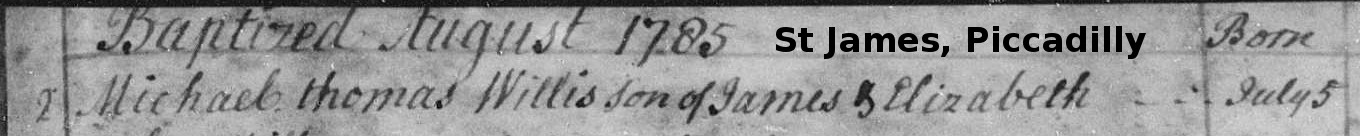 Baptized August 1785 St James, Piccadilly Born
2 Michael thomas Willis son of James & Elizabeth - - July 5